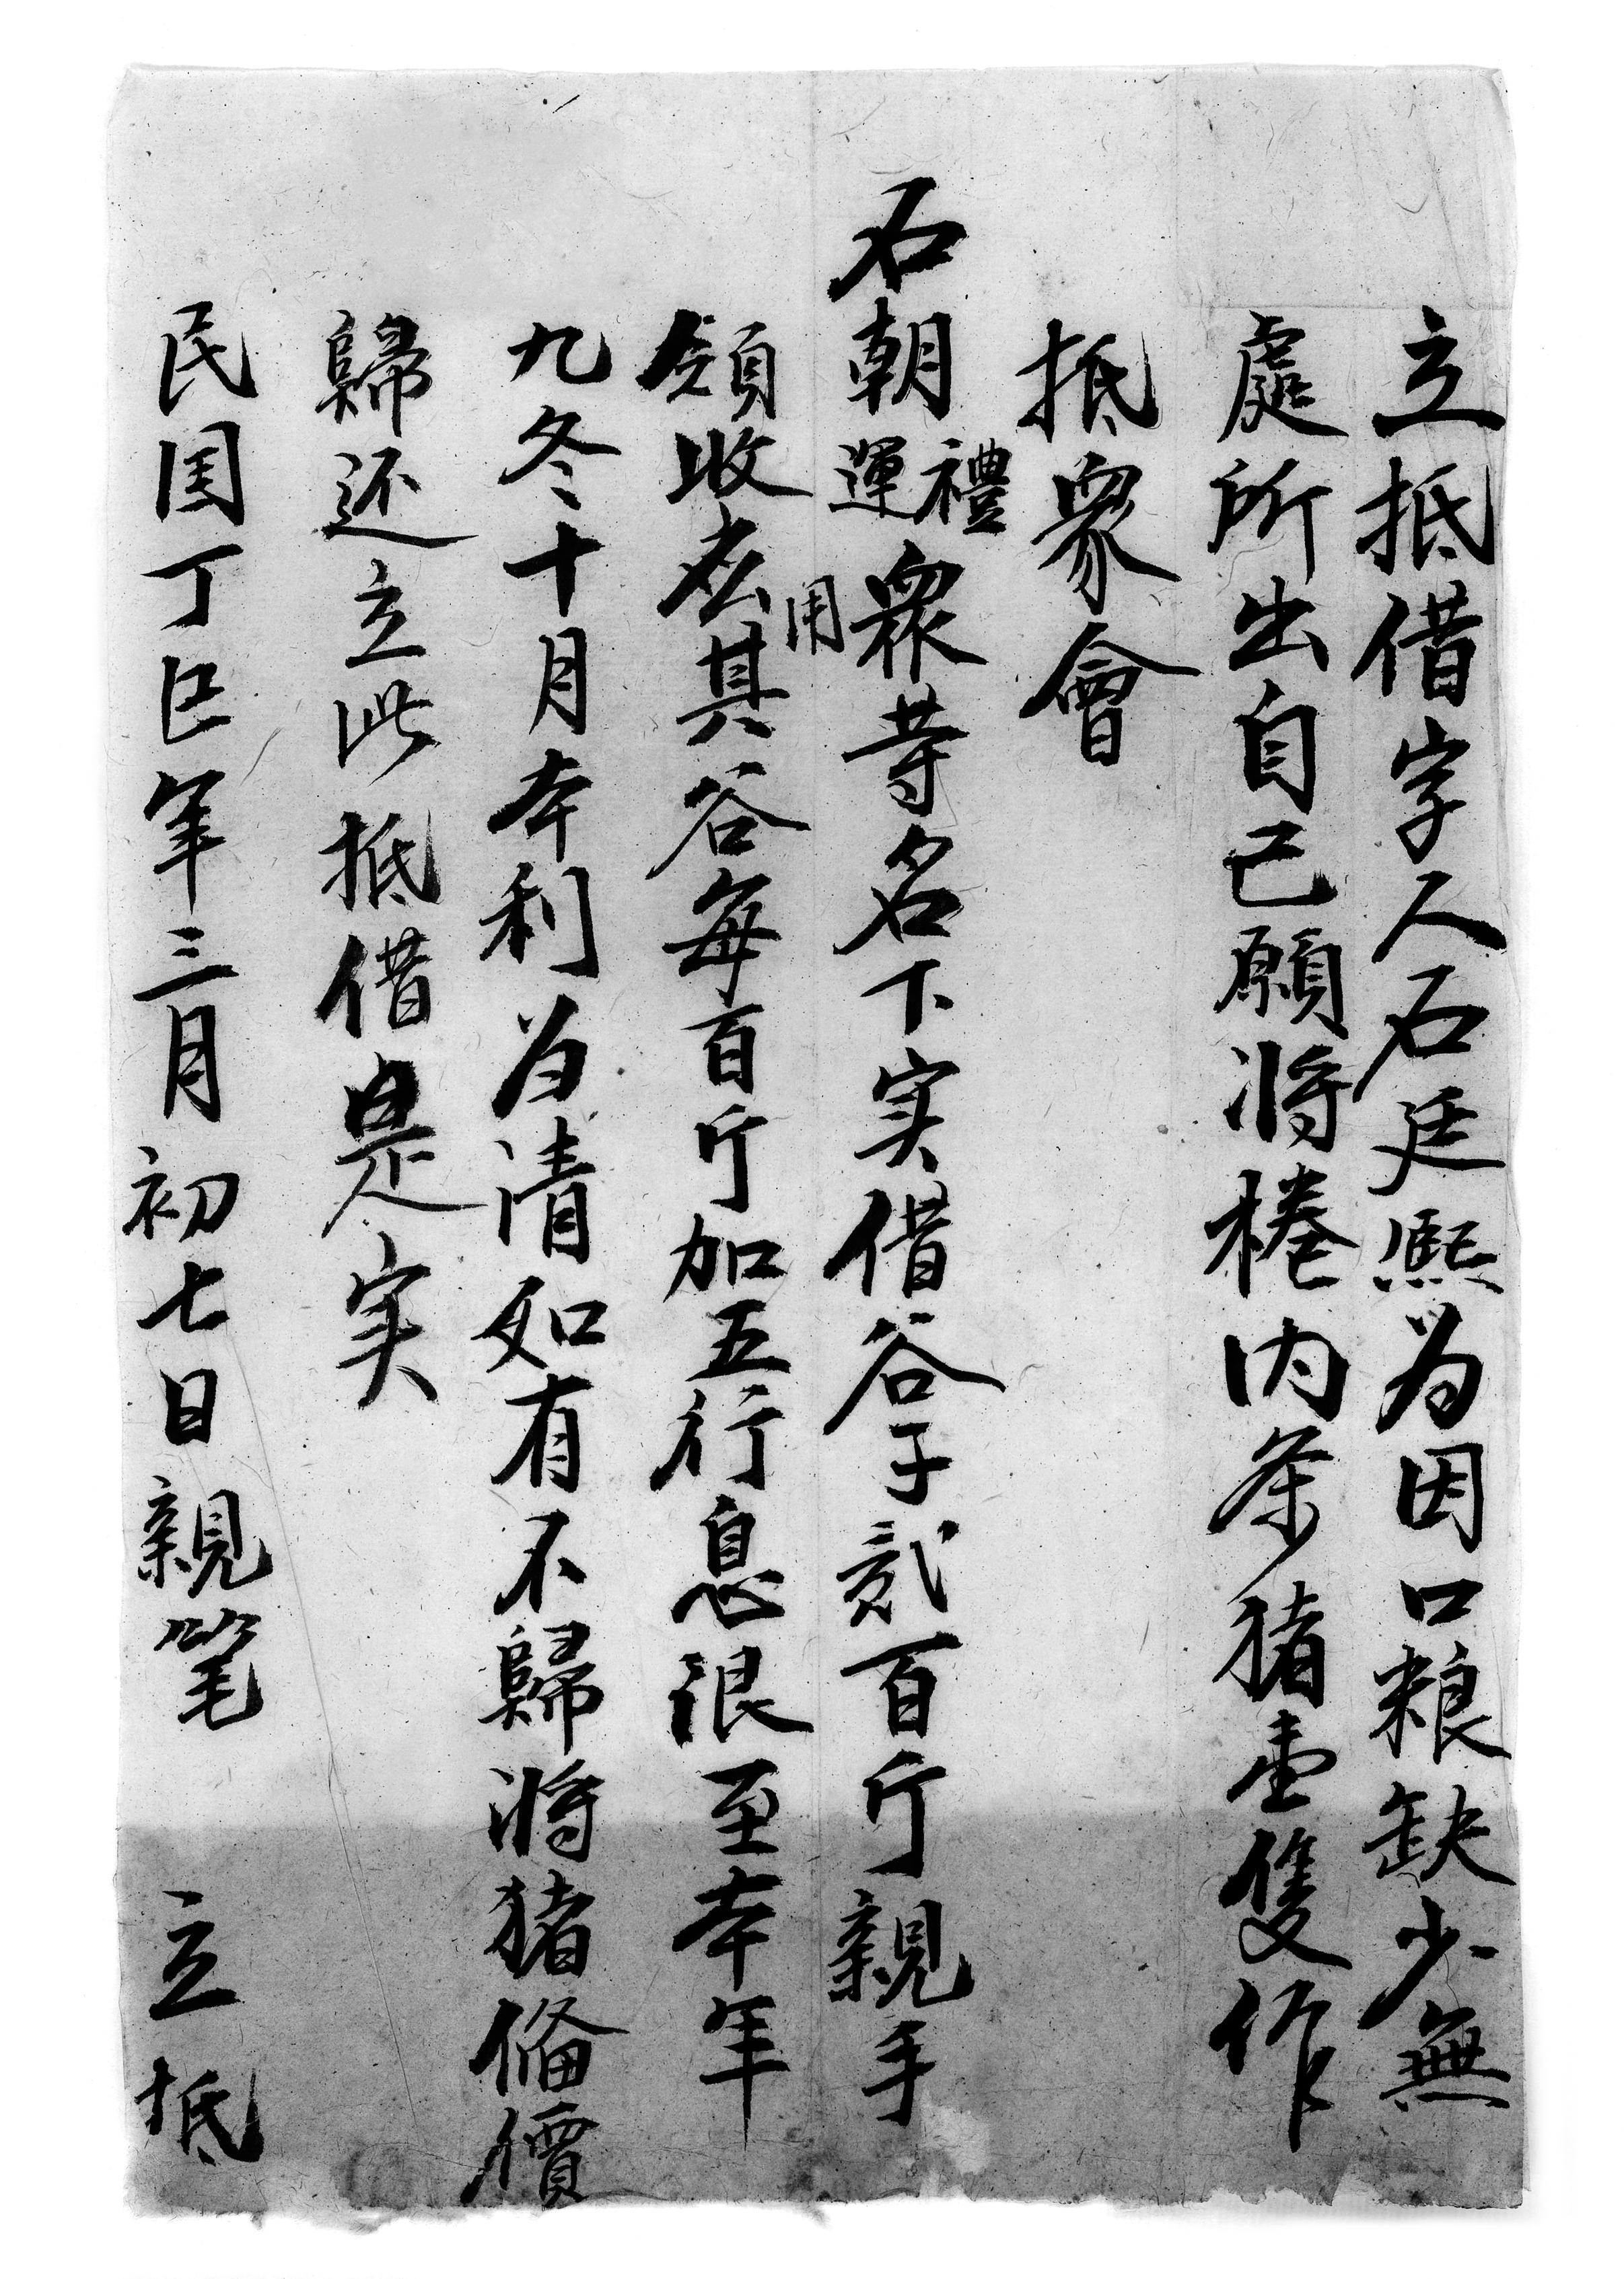 立抵借字人石廷熙为因口粮缺少無
處所出自己願将棬内条猪壹隻作
抵衆會
石朝禮運衆䓁名下实借谷子贰百斤親手
領收应用其谷每百斤加五行息限至本年
九冬十月本利为清如有不歸将猪俻價
歸还立此抵借是实
民国丁巳年三月初七日親笔 立抵